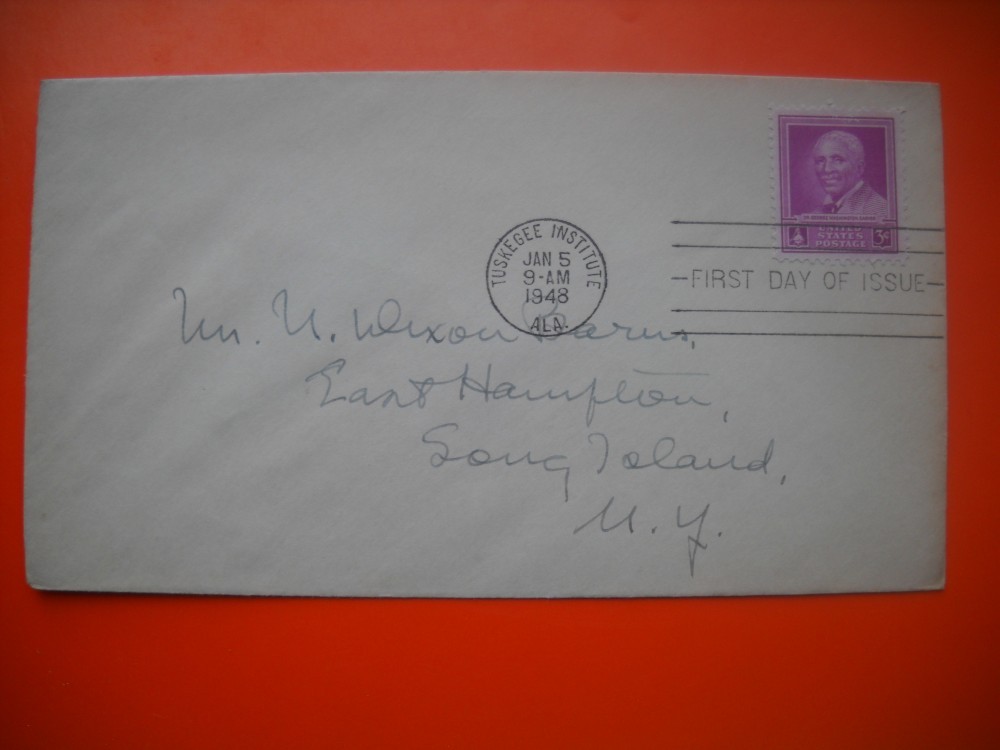 DR. GEORGE WASHINGTON CARVER
UNITED
STATES
POSTAGE
3¢
TUSKEGEE INSTITUTE
JAN 5
9-AM
1948
ALA.
FIRST DAY OF ISSUE
Mr. N. Dixon Barns,
East Hampton,
Long Island,
N. Y.